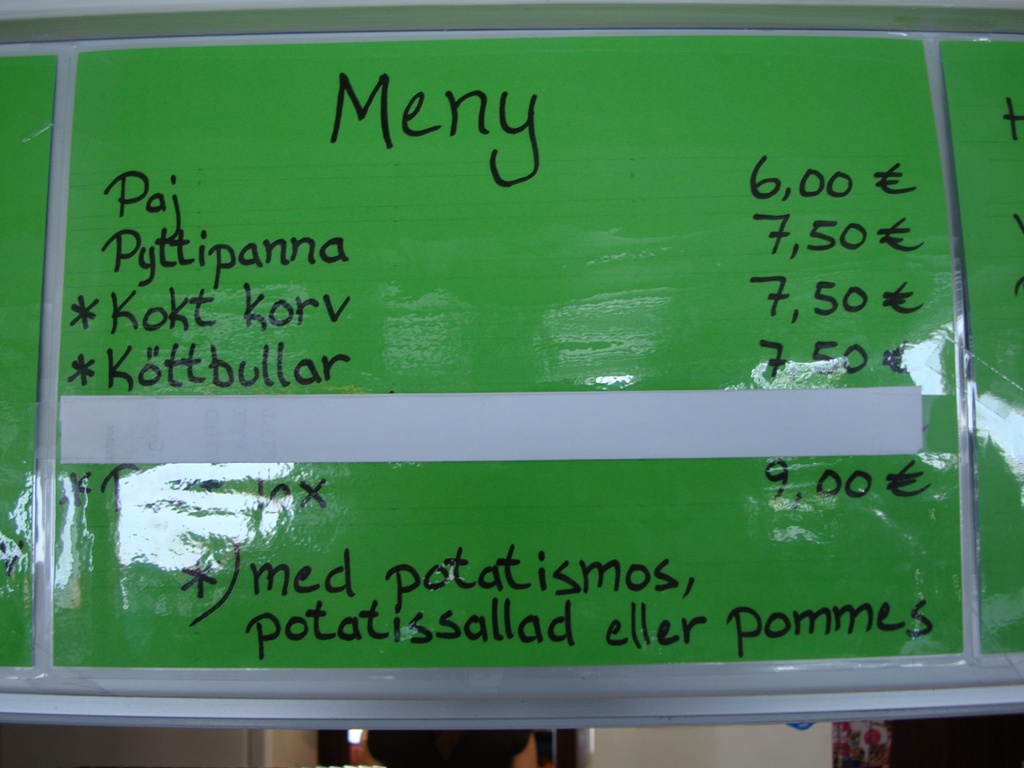 Meny
Paj 6,00 €
Pyttipanna 7,50 €
* Kokt korv 7,50 €
* Köttbullar 7,50 €
* 9,00 €
*) med potatismos,
potatissallad eller pommes